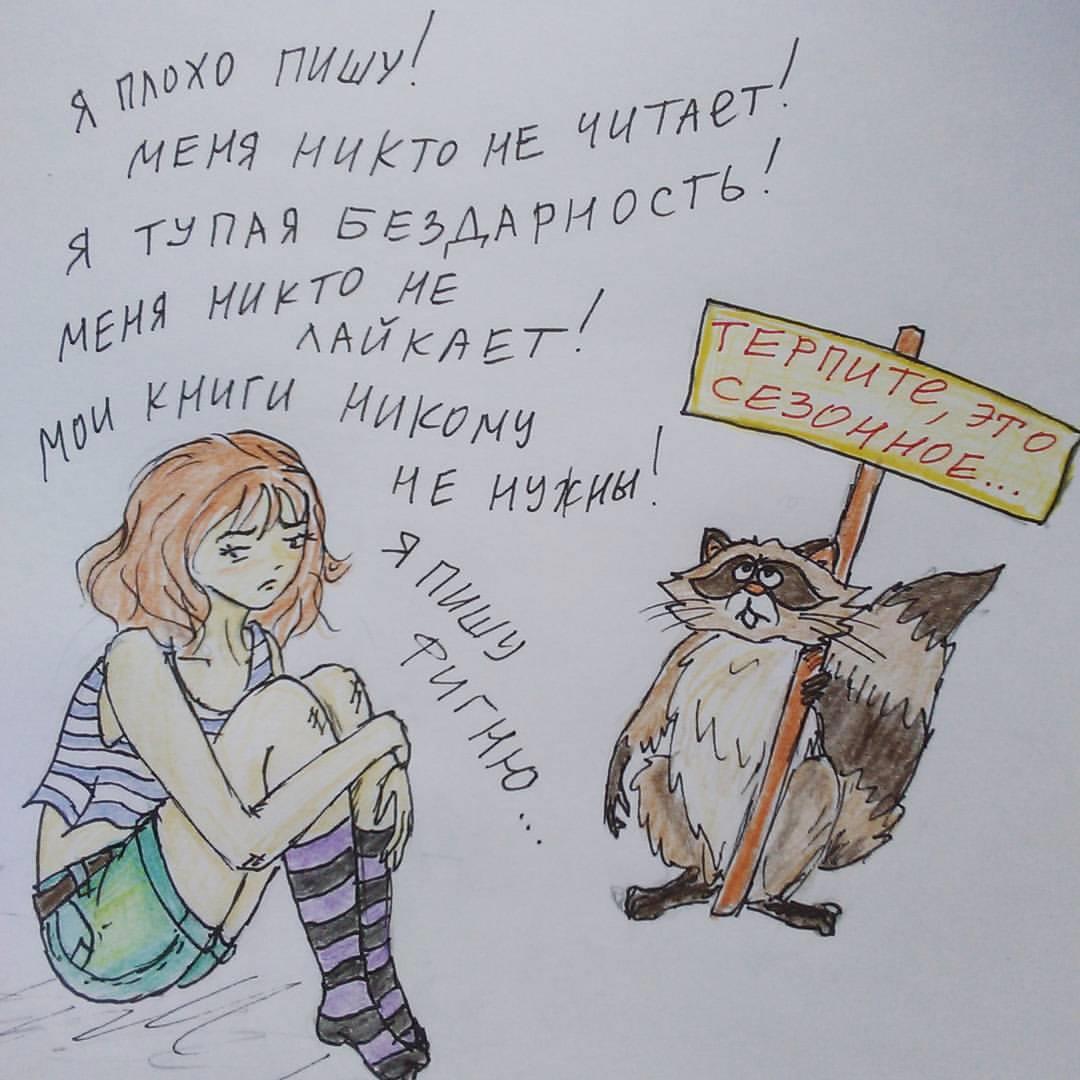 Я ПЛОХО ПИШУ!
МЕНЯ НИКТО НЕ ЧИТАЕТ!
Я ТУПАЯ БЕЗДАРНОСТЬ!
МЕНЯ НИКТО НЕ
ЛАЙКАЕТ!
МОИ КНИГИ НИКОМУ
НЕ НУЖНЫ!
Я ПИШУ
ФИГНЮ...
ТЕРПИТЕ, ЭТО
СЕЗОННОЕ...